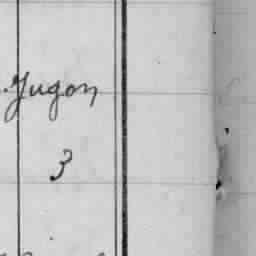 Jugon
3